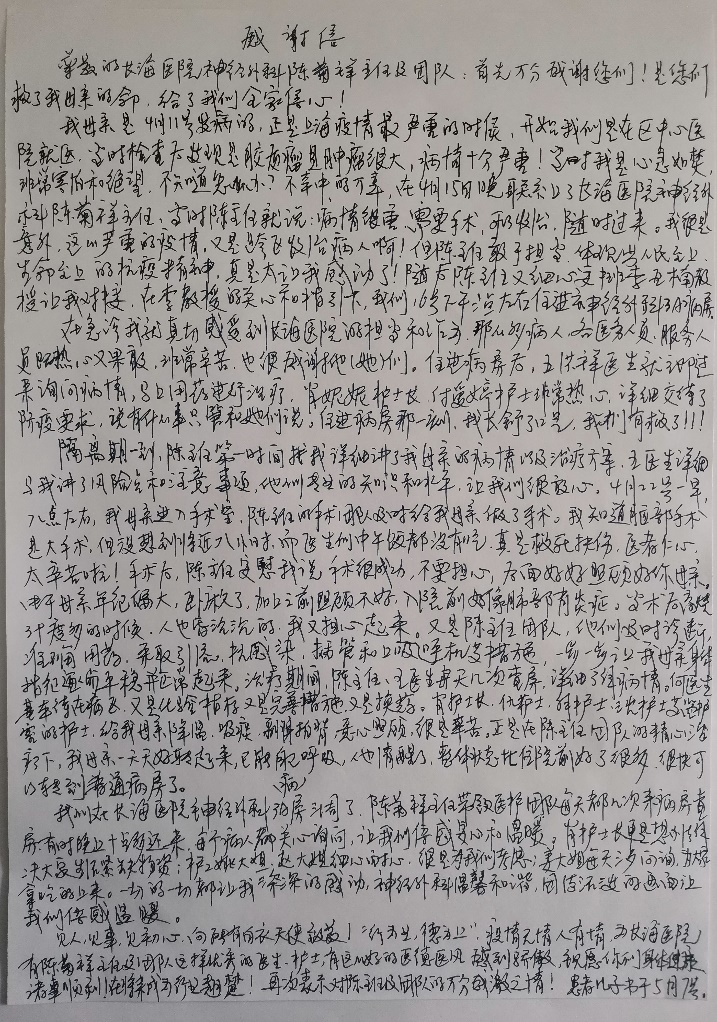 感谢信
尊敬的长海医院神经外科陈菊祥主任及团队：首先十分感谢您们！是您们
救了我母亲的命，给了我们全家信心！
我母亲是4月11号发病的，正是上海疫情最严重的时候，开始我们是在区中心医
院就医，当时检查后发现是胶质瘤且肿瘤很大，病情十分严重！当时我是心急如焚，
非常害怕和绝望，不知道怎么办？不幸中的万幸，在4月15日晚联系上了长海医院神经外
科陈菊祥主任，当时陈主任就说：病情很重，需要手术，可以收治，随时过来。我很是
意外，这么严重的疫情，又是会收治病人啊！但陈主任敢于担当，体现出人民至上、
生命至上的抗疫精神，真是太让我感动了！随后陈主任又细心安排李教
授让我对接，在李教授的关心和指引下，我们16号下午住进神经外科病房
在急诊我就真切感受到长海医院的担当和，那么多病人，各医务人员、服务人
员既热心又果敢，非常辛苦，也很感谢他(她)们。住进病房后，王洪祥医生就立即过
来询问病情，马上用药进行治疗，肖妮妮护士长、付媛婷护士非常热心，详细交待了
防疫要求，说有什么事只管和她们说。住进病房那一刻，我长舒了口气，我们有救了!!!
隔离期一到，陈主任第一时间找我详细讲了我母亲的病情以及治疗方案，王医生详细
与我讲了风险和注意事项，他们专业的知识和水平，让我们很放心。4月22号一早，
八点左右，我母亲进入手术室，陈主任的手术团队及时给我母亲做了手术。我知道脑部手术
是大手术，但没想到将近八小时，而医生们中午饭都没有吃，真是救死扶伤，医者仁心，
太辛苦啦！手术后，陈主任安慰我说手术很成功，不要担心，后面好好照顾好你母亲。
由于母亲年纪偏大，卧床久了，加上之前照顾不好，入院前好像肺部有炎症。手术后高烧
39度多的时候，人也昏沉沉的，我又担心起来。又是陈主任团队，他们及时诊断，
准确用药，采取引流、抗感染、插管和上呼吸机等措施，一步一步让我母亲身体
指征逐渐平稳并正常起来。治疗期间，陈主任、王医生每天几次查房，详细了解病情。何医生
基本待在病区，又是化会指标又是完善措施又是换药。肖护士长、仇护士、
的护士，给我母亲降温、吸痰、翻身拍背、悉心照顾，很是辛苦。正是在陈主任团队的精心治
疗下，我母亲一天天好转起来，已脱机呼吸，人也清醒了，整体状态比住院前好了很多，很快可
以转到普通病房了。
我们在长海医院神经外科病房20多天了，陈菊祥主任带领医护团队每天都几次来病房查
房，有时晚上十点还来，每个病人都关心询问，让我们倍感安心和温暖。肖护士长更是想办法解
决大家生活紧缺物资；护工姚大姐、赵大姐细心耐心，很是为我们考虑；姜大姐每天多次问询，为大家
拿吃的上来。一切的一切都让我深深的感动，神经外科温馨和谐，团结活泼的画面让
我们倍感温暖。
见人见事，见初心，向所有白衣天使致敬！“行为先，德为上”，疫情无情人有情，为长海医院
有陈菊祥主任及团队这样优秀的医生、护士，有这么好的医德医风感到骄傲，祝愿你们身体健康
诸事顺利！再次表示对陈主任及团队的万分感激之情！患者儿子书于5月7号。